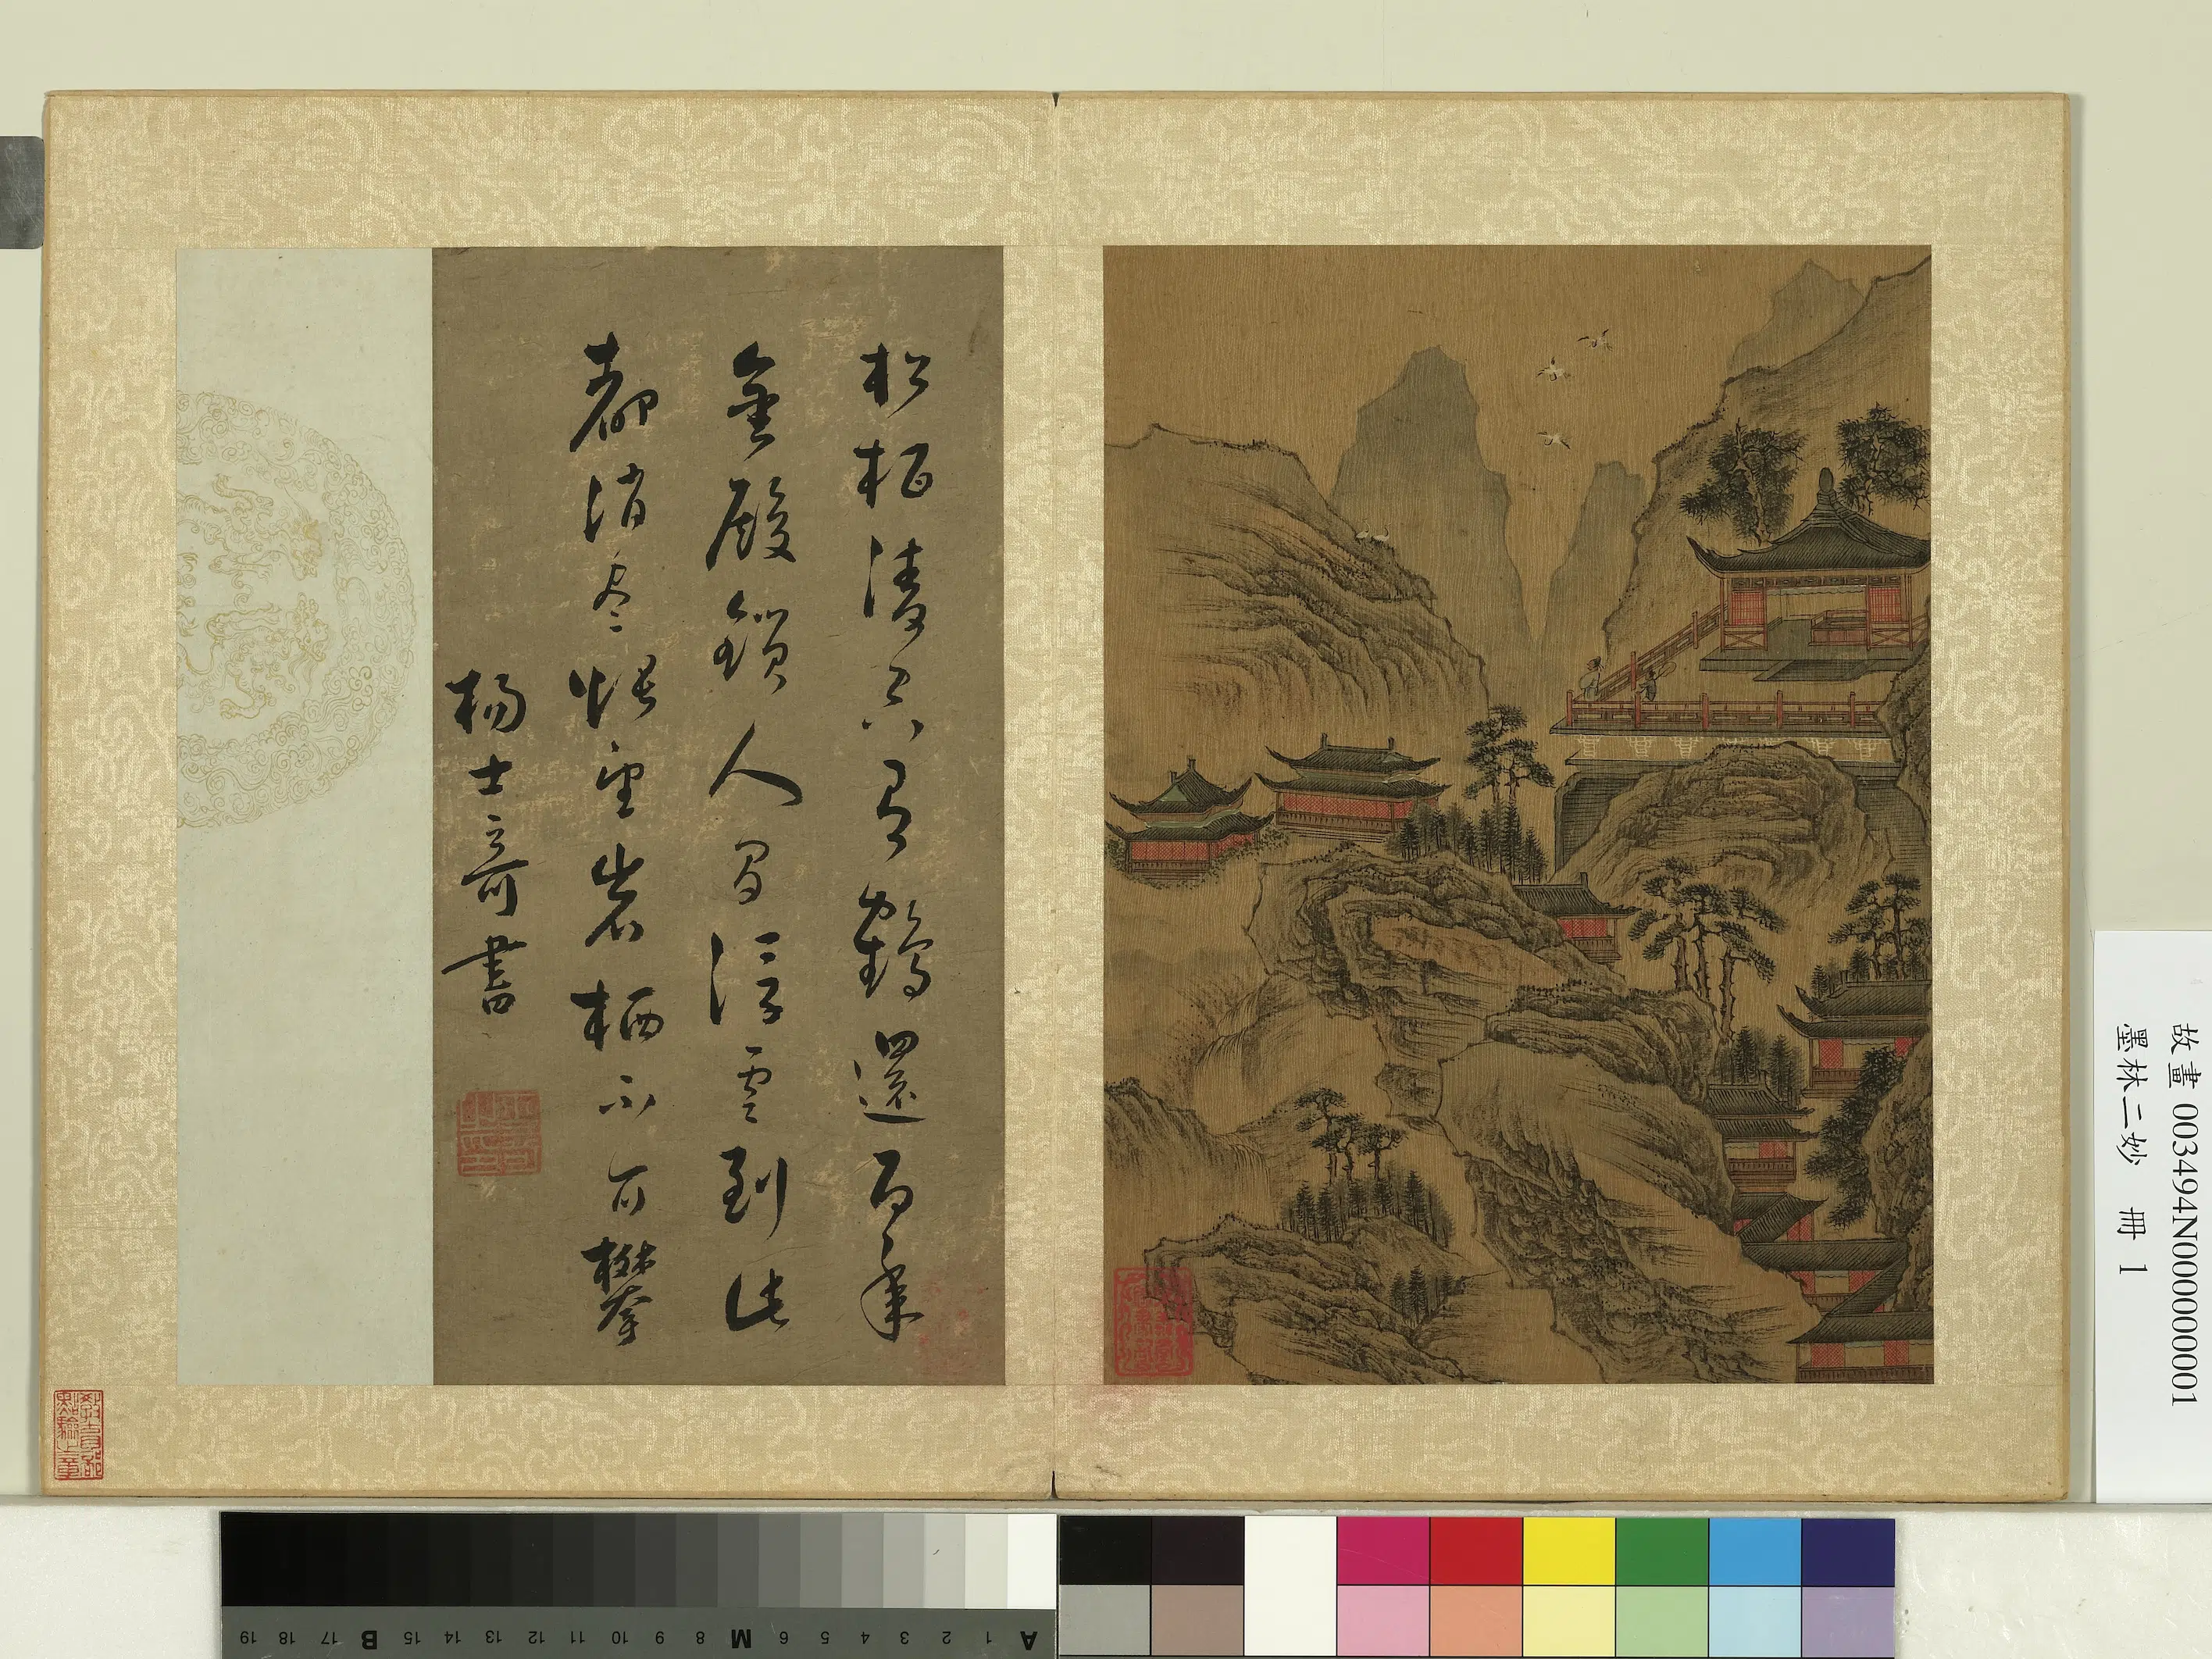 松柏凌空有鶴還百年
金殿鎖人間浮雲到此
都消尽悵望岩栖不可攀
楊士奇書
教育部
點驗之章
故畫 003494N000000001
墨林二妙 冊 1
A 1 2 3 4 5 6 M 8 9 10 11 12 13 14 15 B 17 18 19